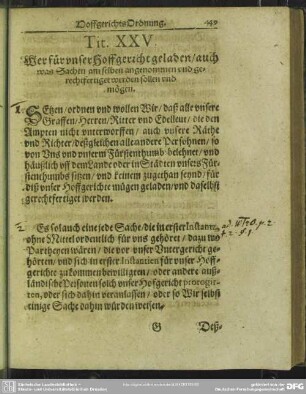 Hoffgerichts Ordnung.
Tit. XXV
Wer für vnser Hoffgericht geladen / auch
was Sachen am selben angenommen vnd ge-
rechtfertiget werden sollen vnd
mögen.
1.
SEtzen / ordnen vnd wollen Wir / daß alle vnsere
Graffen / Herren / Ritter vnd Edelleut / die den
Ampten nicht vnterworffen / auch vnsere Räthe
vnd Richter / deßgleichen alle andere Personen / so
von Vns vnd vnserm Fürstenthumb belehnet / vnd
häußlich vff dem Lande oder in Städten vnsers Für-
stenthumbs sitzen / vnd keinem zugethan seynd / für
diß vnser Hoffgerichte mögen geladen / vnd daselbst
gerechtfertiget werden.
2
Es sol auch eine jede Sache / die in erster Instantz
ohne Mittel ordentlich für vns gehört / dazu wo
Partheyen wären / die vor vnser Vntergericht ge-
hörten / vnd sich in erster Instantien für vnser Hoff-
gerichte zu kommen bewilligten / oder andere auß-
ländische Personen solch vnser Hofgericht prorogir-
ten / oder sich dahin veranlassen / oder so Wir selbst
einige Sache dahin würden weisen.
G
Deß-